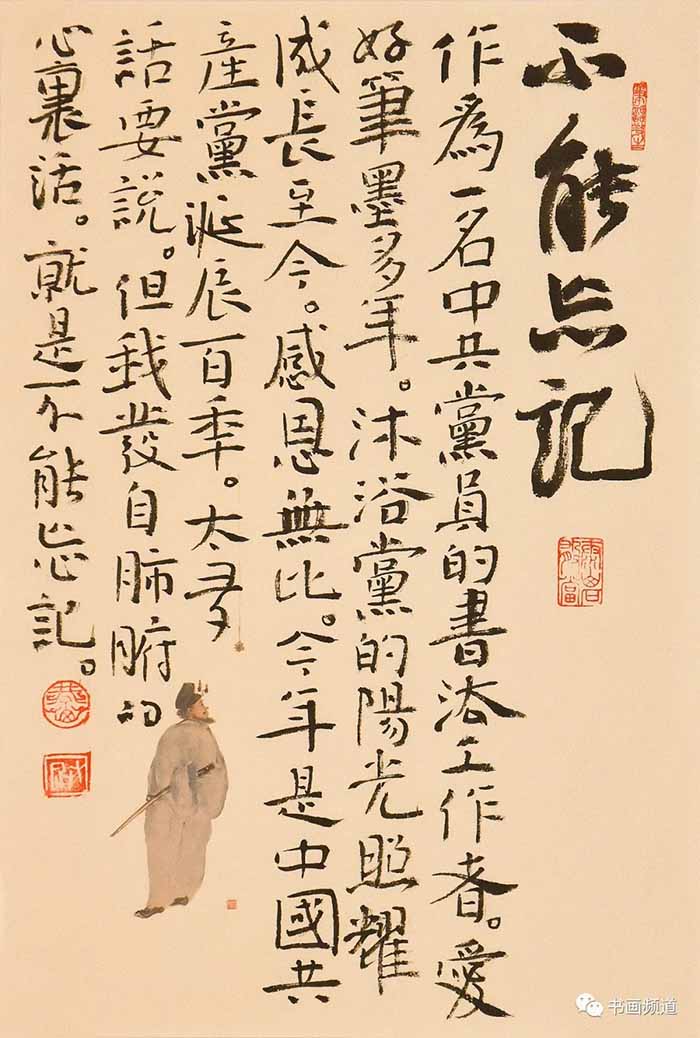 不能忘记
作為一名中共黨員的書法工作者。愛
好筆墨多年。沐浴黨的陽光照耀
成長至今。感恩無比。今年是中國共
產黨誕辰百年。太多
話要説。但我發自肺腑的
心裏活。就是一个能忘記。
书画频道